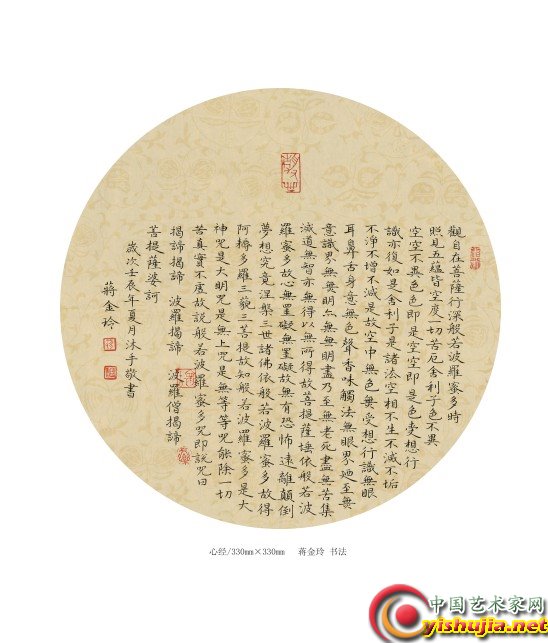 觀自在菩薩行深般若波羅蜜多時
照見五蘊皆空度一切苦厄舍利子色不異
空空不異色色即是空空即是色受想行
識亦復如是舍利子是諸法空相不生不滅不垢
不淨不增不減是故空中無色無受想行識無眼
耳鼻舌身意無色聲香味觸法無眼界乃至無
意識界無無明亦無無明盡乃至無老死盡無苦集
滅道無智亦無得以無所得故菩提薩埵依般若波
羅蜜多故心無罣礙無罣礙故無有恐怖遠離顛倒
夢想究竟涅槃三世諸佛依般若波羅蜜多故得
阿耨多羅三藐三菩提故知般若波羅蜜多是大
神咒是大明咒是無上咒是無等等咒能除一切
苦真實不虛故說般若波羅蜜多咒即說咒曰
揭諦揭諦 波羅揭諦 波羅僧揭諦
菩提薩婆訶
歲次壬辰年夏月沐手敬書
蔣金玲
心经/330mm×330mm 蒋金玲 书法
中国艺术家网
yishujia.net